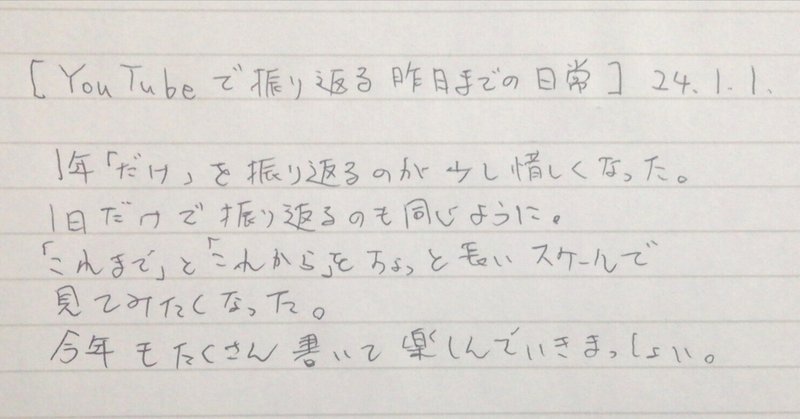 [YouTubeで振り返る昨日までの日常] 24.1.1.
1年「だけ」を振り返るのが少し惜しくなった。
1日だけで振り返るのも同じように。
「これまで」と「これから」をちょっと長いスケールで
見てみたくなった。
今年もたくさん書いて楽しんでいきまっしょい。